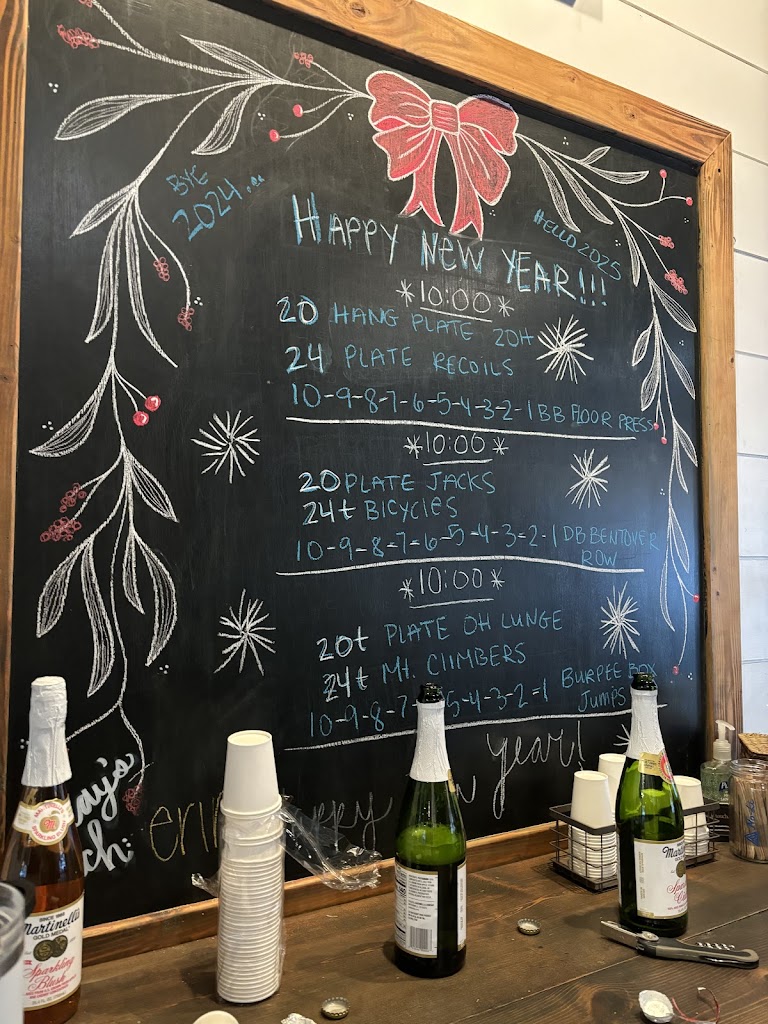 BYE
2024...
HELLO 2025
HAPPY NEW YEAR!!!
*10:00*
20 HANG PLATE 2OH
24 PLATE RECOILS
10-9-8-7-6-5-4-3-2-1 BB FLOOR PRESS
*10:00*
20 PLATE JACKS
24t BICYCLES
10-9-8-7-6-5-4-3-2-1 DB BENTOVER
ROW
*10:00*
20t PLATE OH LUNGE
24t Mt. CLIMBERS
10-9-8-7 5-4-3-2-1 BURPEE BOX
JUMPS
year!
SINCE 1868
Martinelli's
GOLD MEDAL
Sparkling
Blush